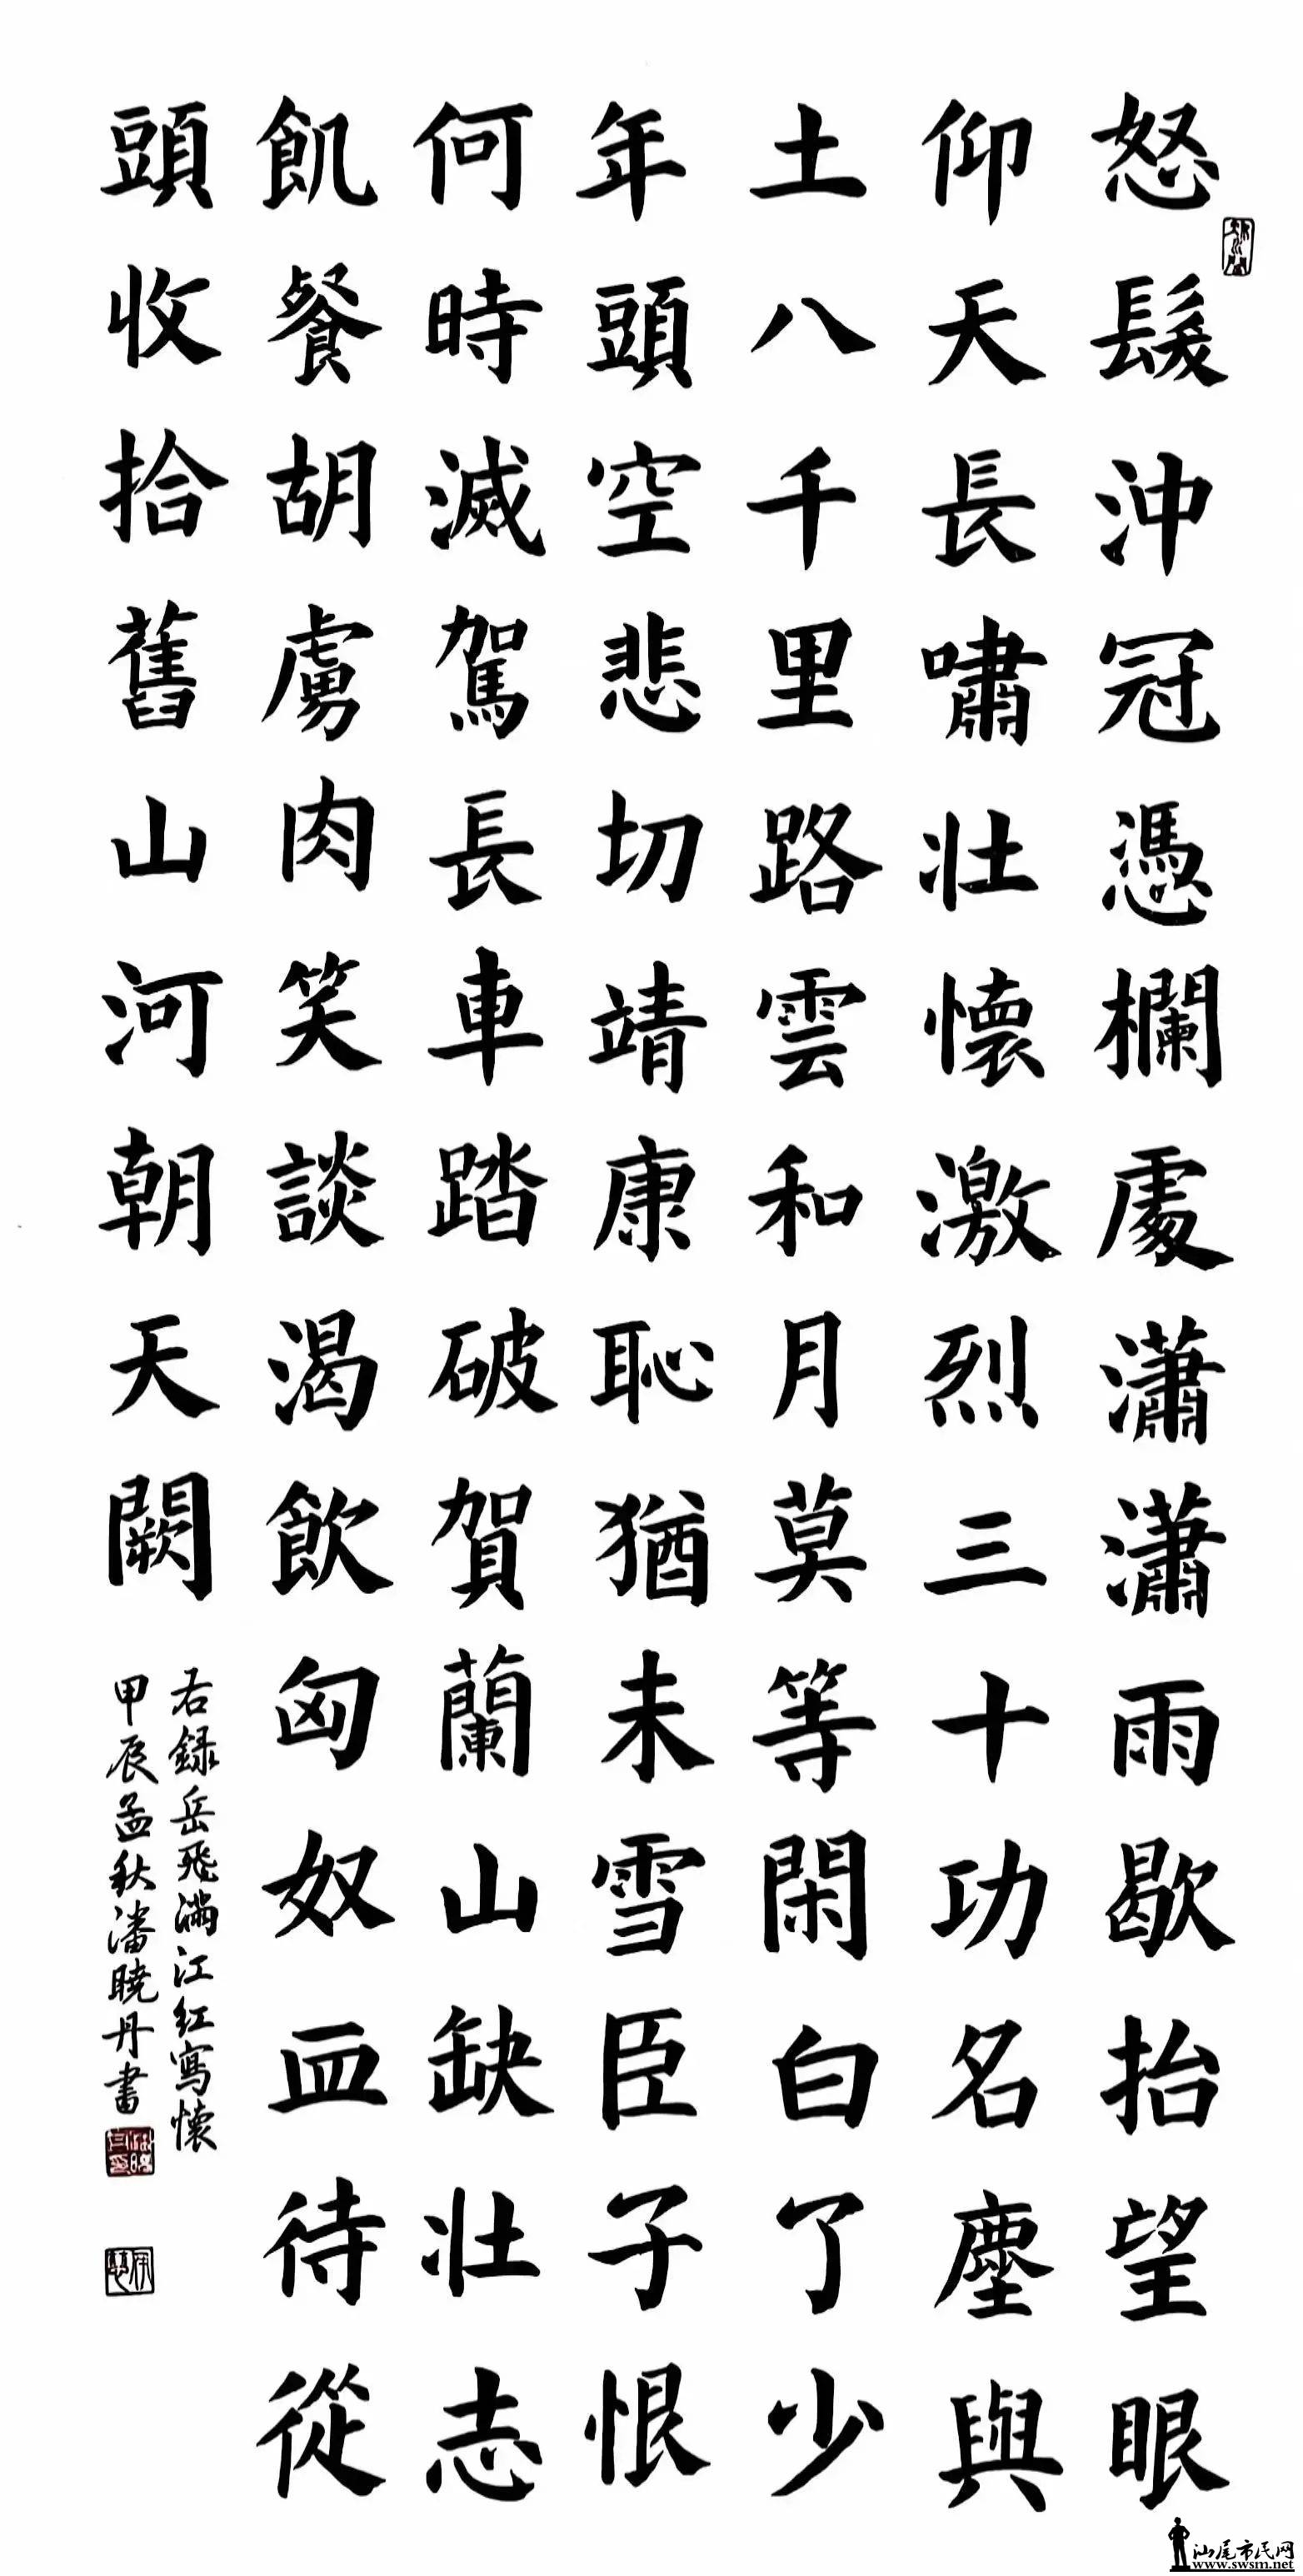 怒髮沖冠憑欄處瀟瀟雨歇抬望眼
仰天長嘯壯懷激烈三十功名塵與
土八千里路雲和月莫等閑白了少
年頭空悲切靖康恥猶未雪臣子恨
何時滅駕長車踏破賀蘭山缺壯志
飢餐胡虜肉笑談渴飲匈奴血待從
頭收拾舊山河朝天闕
右録岳飛滿江紅寫懷
甲辰孟秋潘曉丹書
汕尾市民网
www.swsm.net